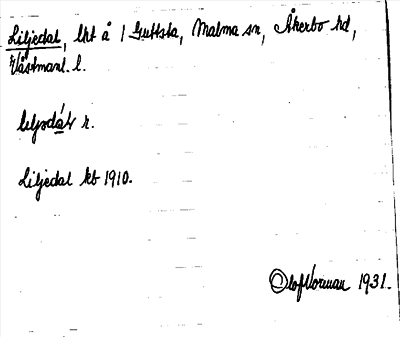 Liljedal, lht å 1 Guttsta, Malma sn, Åkerbo hd,
Västmanl. l.
liljedál r.
Liljedal kb 1910.
Olof Norman 1931.